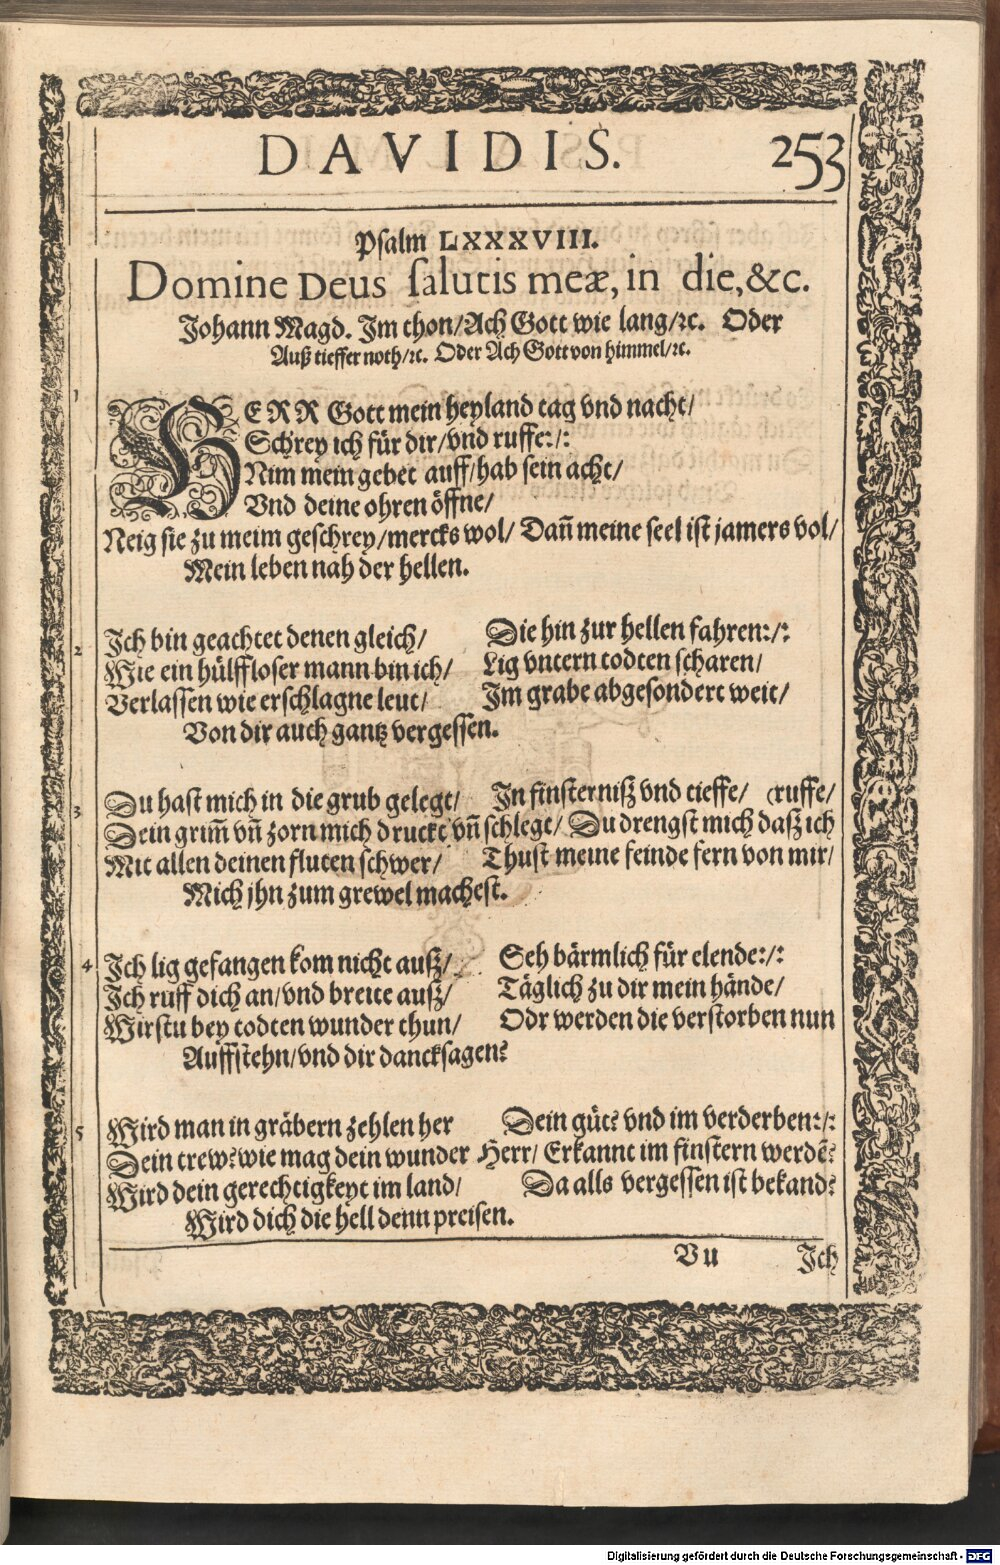 DAVIDIS. 253
Psalm LXXXVIII.
Domine Deus ſalutis meæ, in die, &c.
Johann Magd. Im thon/Ach Gott wie lang/ꝛc. Oder
Auß tieffer noth/ꝛc. Oder Ach Gott von himmel/ꝛc.
1 HERR Gott mein heyland tag vnd nacht/
Schrey ich für dir/vnd ruffe:/:
Nim mein gebet auff/hab sein acht/
Vnd deine ohren öffne/
Neig sie zu meim geschrey/mercks wol/ Dañ meine seel ist jamers vol/
Mein leben nah der hellen.
2 Ich bin geachtet denen gleich/ Die hin zur hellen fahren:/:
Wie ein hülffloser mann bin ich/ Lig vntern todten scharen/
Verlassen wie erschlagne leut/ Im grabe abgesondert weit/
Von dir auch gantz vergessen.
3 Du hast mich in die grub gelegt/ In finsterniß vnd tieffe/ (ruffe/
Dein grim̃ vñ zorn mich druckt vñ schlegt/ Du drengst mich daß ich
Mit allen deinen fluten schwer/ Thust meine feinde fern von mir/
Mich jhn zum grewel machest.
4 Ich lig gefangen kom nicht auß/ Seh bärmlich für elende:/:
Ich ruff dich an/vnd breite auß/ Täglich zu dir mein hände/
Wirstu bey todten wunder thun/ Odr werden die verstorben nun
Auffstehn/vnd dir dancksagen?
5 Wird man in gräbern zehlen her Dein güt? vnd im verderben:/:
Dein trew? wie mag dein wunder Herr/ Erkannt im finstern werdẽ?
Wird dein gerechtigkeyt im land/ Da alls vergessen ist bekand?
Wird dich die hell denn preisen.
Vu Ich
Digitalisierung gefördert durch die Deutsche Forschungsgemeinschaft - DFG